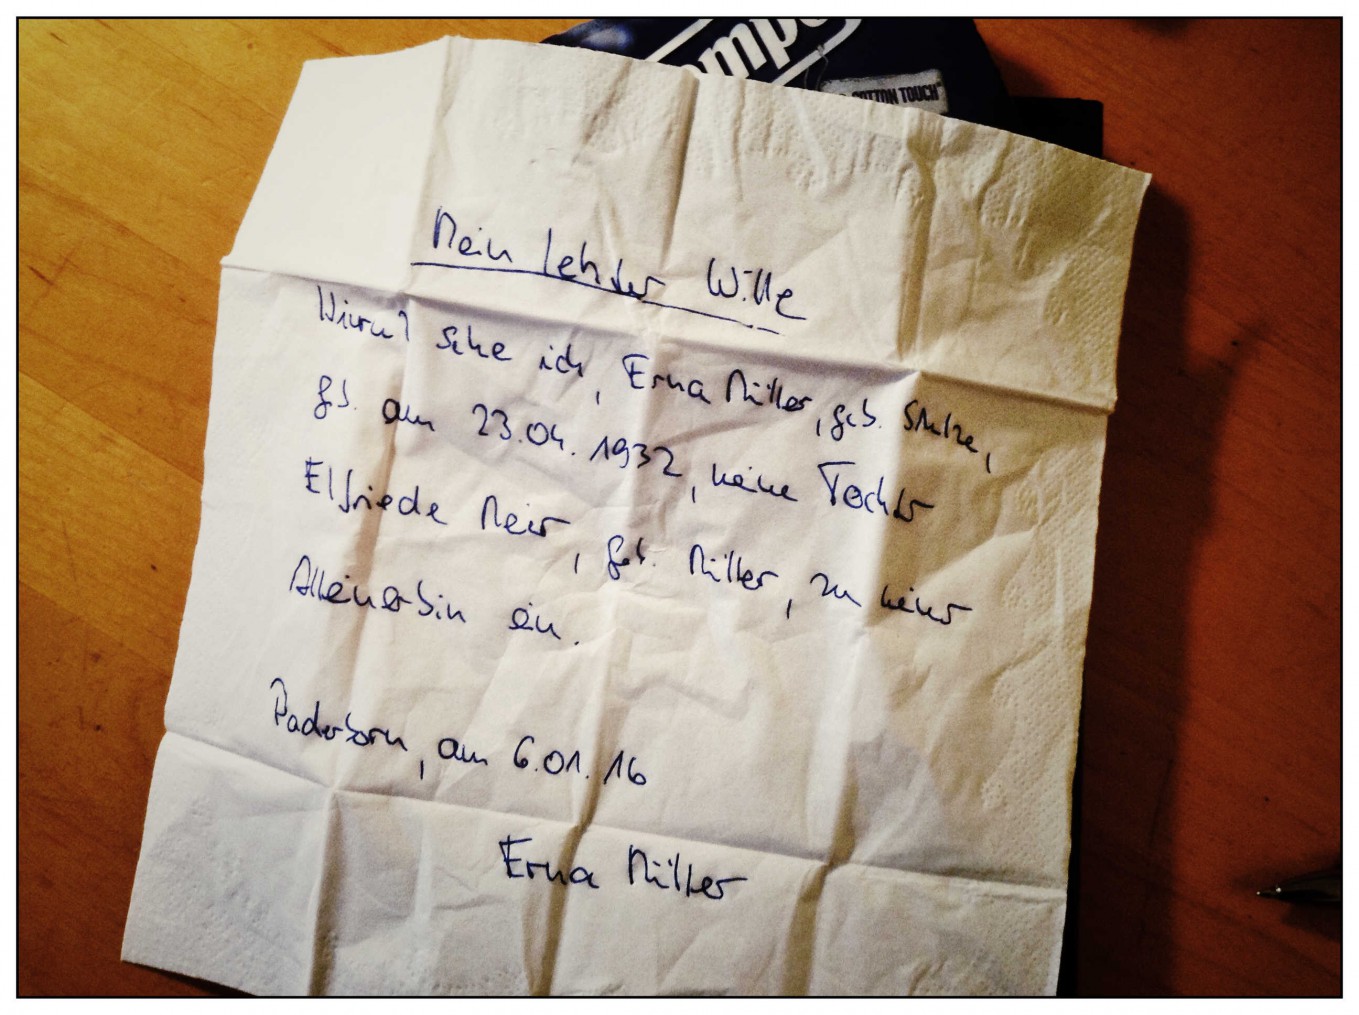 empo
COTTON TOUCH
Mein letzter Wille
Hiermit setze ich, Erna Müller, geb.
geb. am 23.04.1932, meine Tochter
Elfriede Meier, geb. Müller, zu meiner
Alleinerbin ein.
Paderborn, am 6.01.16
Erna Müller